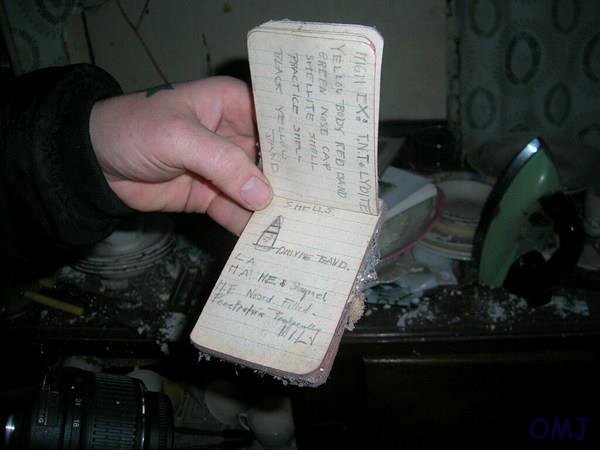 HIGH EX: T.N.T. LYDITE
YELLOW BODY RED BAND
GREEN NOSE CAP
SHELLITE SHELL
PRACTICE SHELL
BLACK YELLOW
BAND
SHELLS.
DRIVING BAND.
L A
H.A. HE & Shrapnel
H.E Nosed Filled.
Penetration Practically
NIL
28
18
OMJ